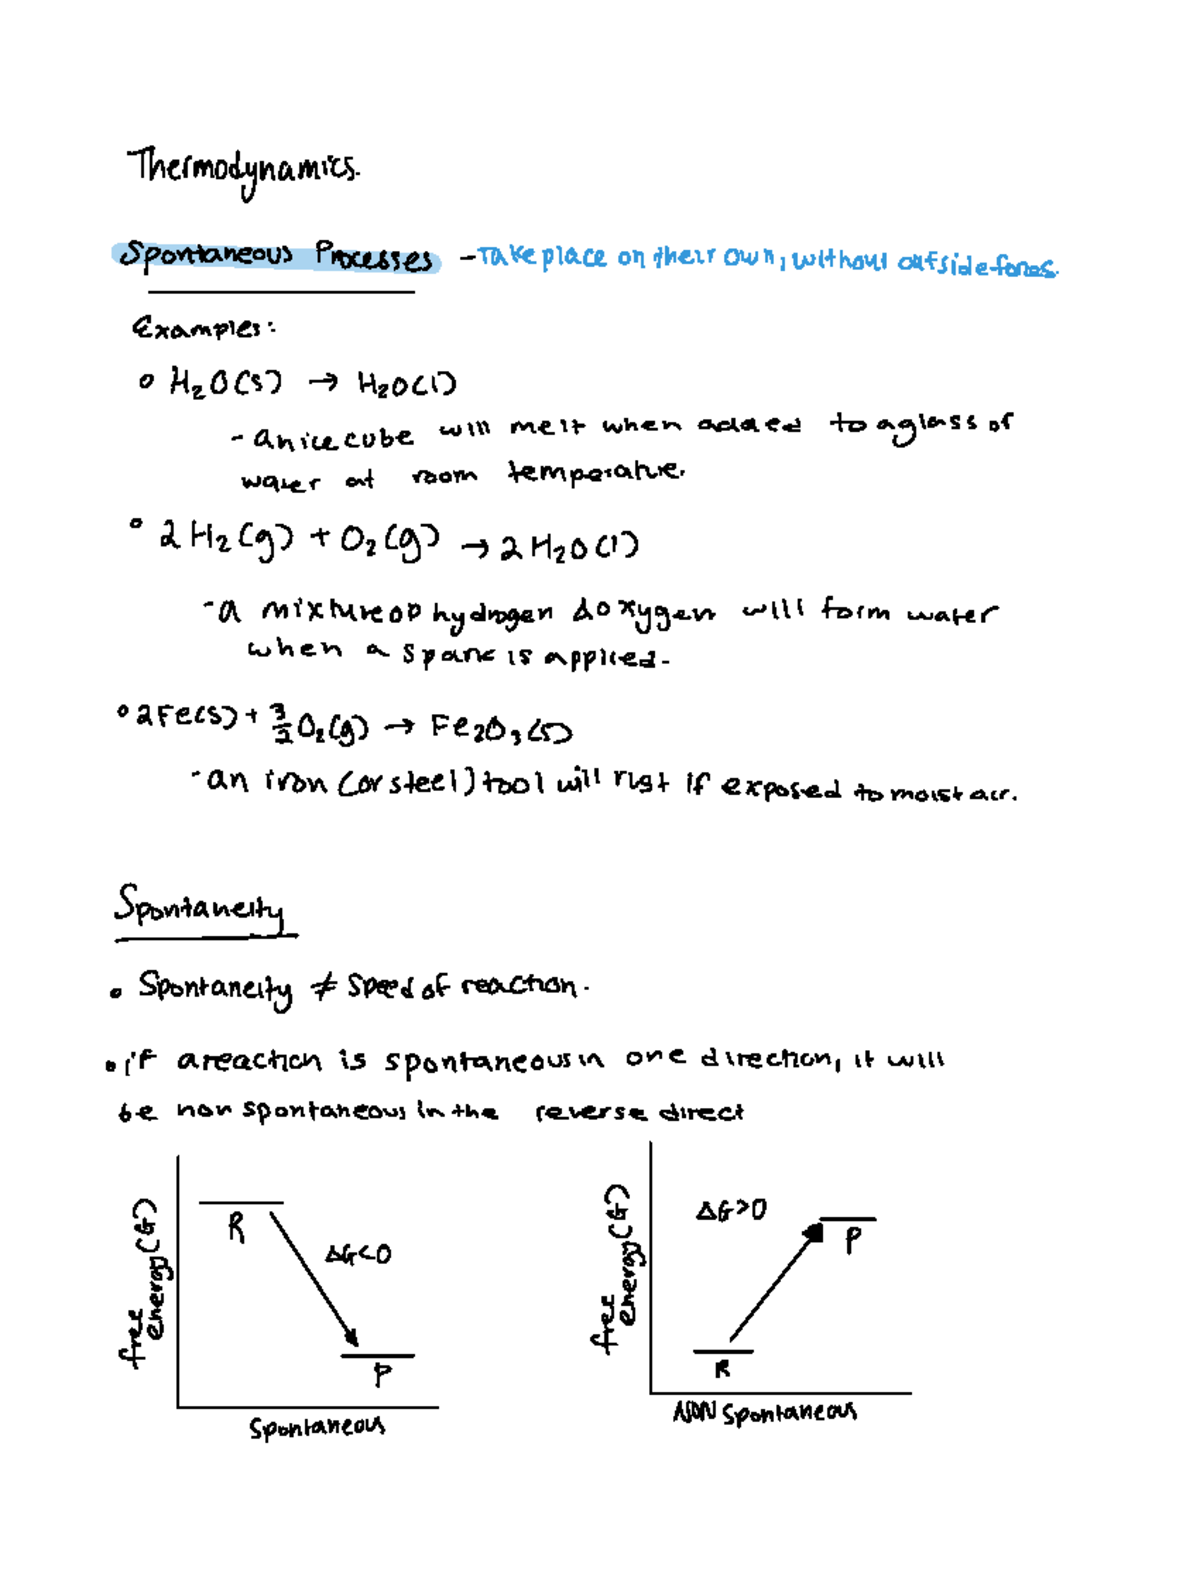 Thermodynamics.
Spontaneous Processes - Take place on their own, without outside forces.
Examples:
° H₂O(s) → H₂O(l)
- an ice cube will melt when added to a glass of
water at room temperature.
° 2H₂(g) + O₂(g) → 2H₂O(l)
- a mixture of hydrogen & oxygen will form water
when a spark is applied.
° 2Fe(s) + 3/2 O₂(g) → Fe₂O₃(s)
- an iron (or steel) tool will rust if exposed to moist air.
Spontaneity
• Spontaneity ≠ speed of reaction.
• if a reaction is spontaneous in one direction, it will
be non spontaneous in the reverse direct
free energy (G)
R
ΔG<0
P
Spontaneous
free energy (G)
ΔG>0
P
R
NON Spontaneous